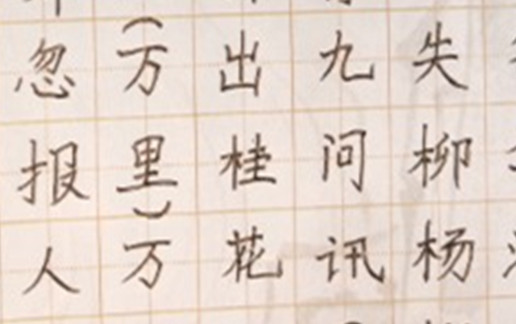 失柳杨
九问讯
出桂花
(万里)万
忽报人